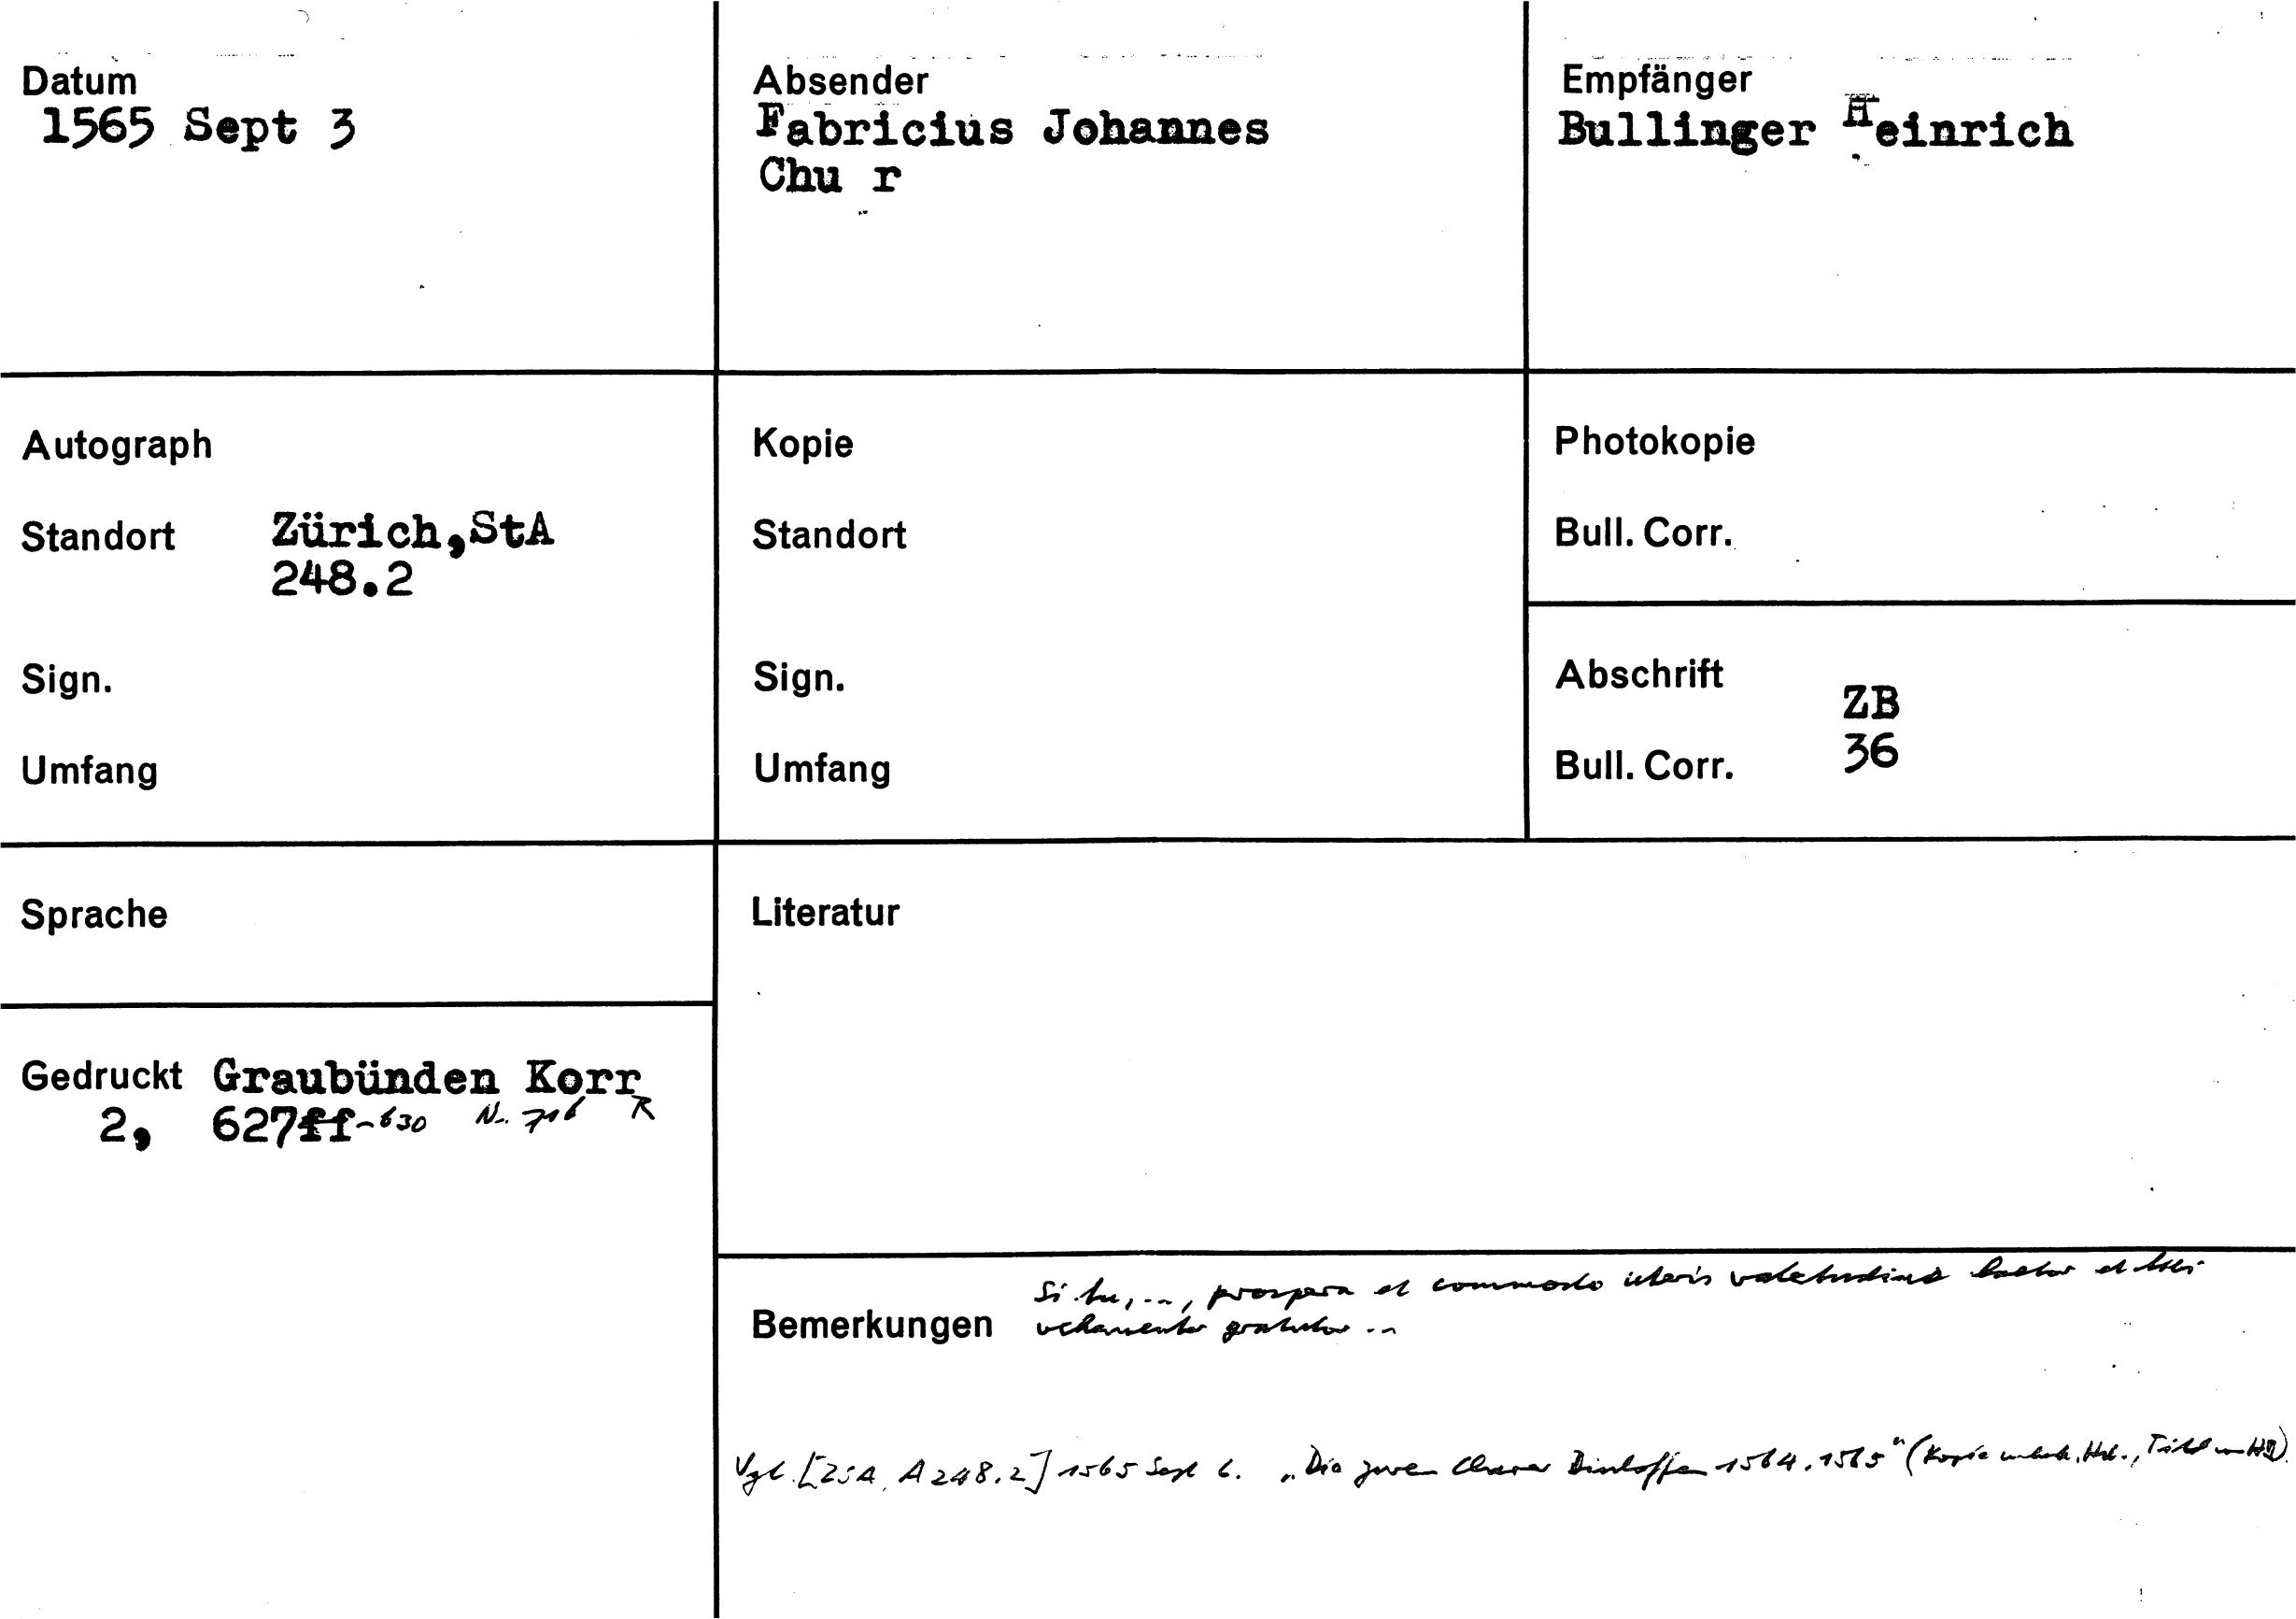 Datum
1565 Sept 3
Absender
Fabricius Johannes
Chu r
Empfänger
Bullinger Heinrich
Autograph
Standort Zürich,StA
248.2
Sign.
Umfang
Kopie
Standort
Sign.
Umfang
Photokopie
Bull. Corr.
Abschrift ZB
Bull. Corr. 36
Sprache
Gedruckt Graubünden Korr
2, 627ff-630 Nr. 716 R
Literatur
Si tu, .., prospera et commoda uteris valetudine laetor et tibi
Bemerkungen vehementer gratulor ..
Vgl. [ZSA, A 248.2] 1565 Sept 6. „Die zwen Churer 1564. 1565" (Kopie unbek. Hd., Titel von HB).